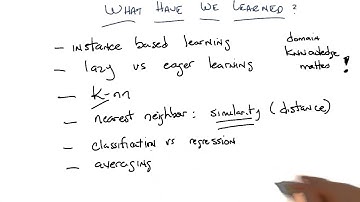 WHAT HAVE WE LEARNED?
- instance based learning
- lazy vs eager learning
- K-nn
- nearest neighbor: similarity (distance)
- classification vs regression
- averaging
domain
knowledge
matters!